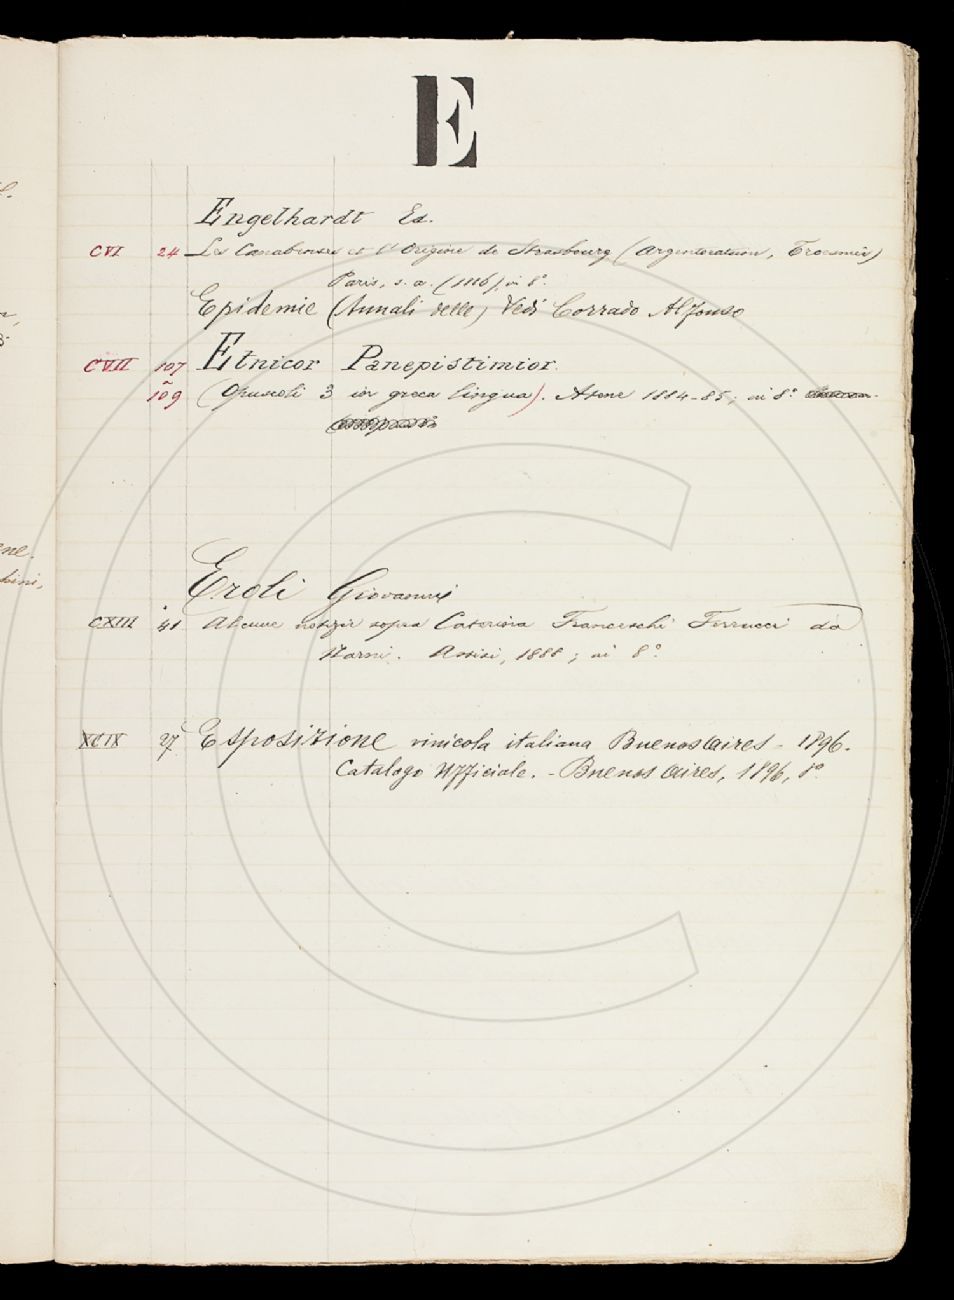 E
Engelhardt Ed.
CVI 24 Les Canabenses et l'Origine de Strasbourg (Argentoratum, Troesmis)
Paris, s. a. (1886), in 8°.
Epidemie (Annali delle) Vedi Corrado Alfonso
CVII 107 Etnicor Panepistimior.
109 (Opuscoli 3 in greca lingua). Atene 1884-85; in 8°
Eroli Giovanni
CXIII 41 Alcune notizie sopra Caterina Franceschi Ferrucci da
Narni. Assisi, 1888; in 8°.
XCIX 27 Esposizione vinicola italiana Buenos Aires - 1896.
Catalogo Ufficiale. - Buenos Aires, 1896, 8°